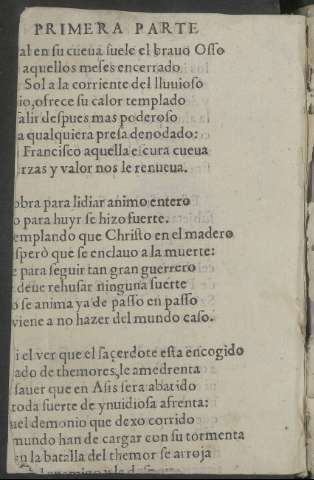 PRIMERA PARTE
al en su cueua suele el brauo Osso
aquellos meses encerrado
Sol a la corriente del lluuioso
io, ofrece su calor templado
salir despues mas poderoso
a qualquiera presa denodado:
Francisco aquella escura cueua
erzas y valor nos le renueua.
obra para lidiar animo entero
o para huyr se hizo fuerte.
emplando que Christo en el madero
sperò que se enclauo a la muerte:
e para seguir tan gran guerrero
deue rehusar ninguna suerte
o se anima ya de passo en passo
viene a no hazer del mundo caso.
i el ver que el saçerdote esta encogido
ado de themores, le amedrenta
sauer que en Asis sera abatido
toda suerte de ynuidiosa afrenta:
uel demonio que dexo corrido
mundo han de cargar con su tormenta
en la batalla del themor se arroja